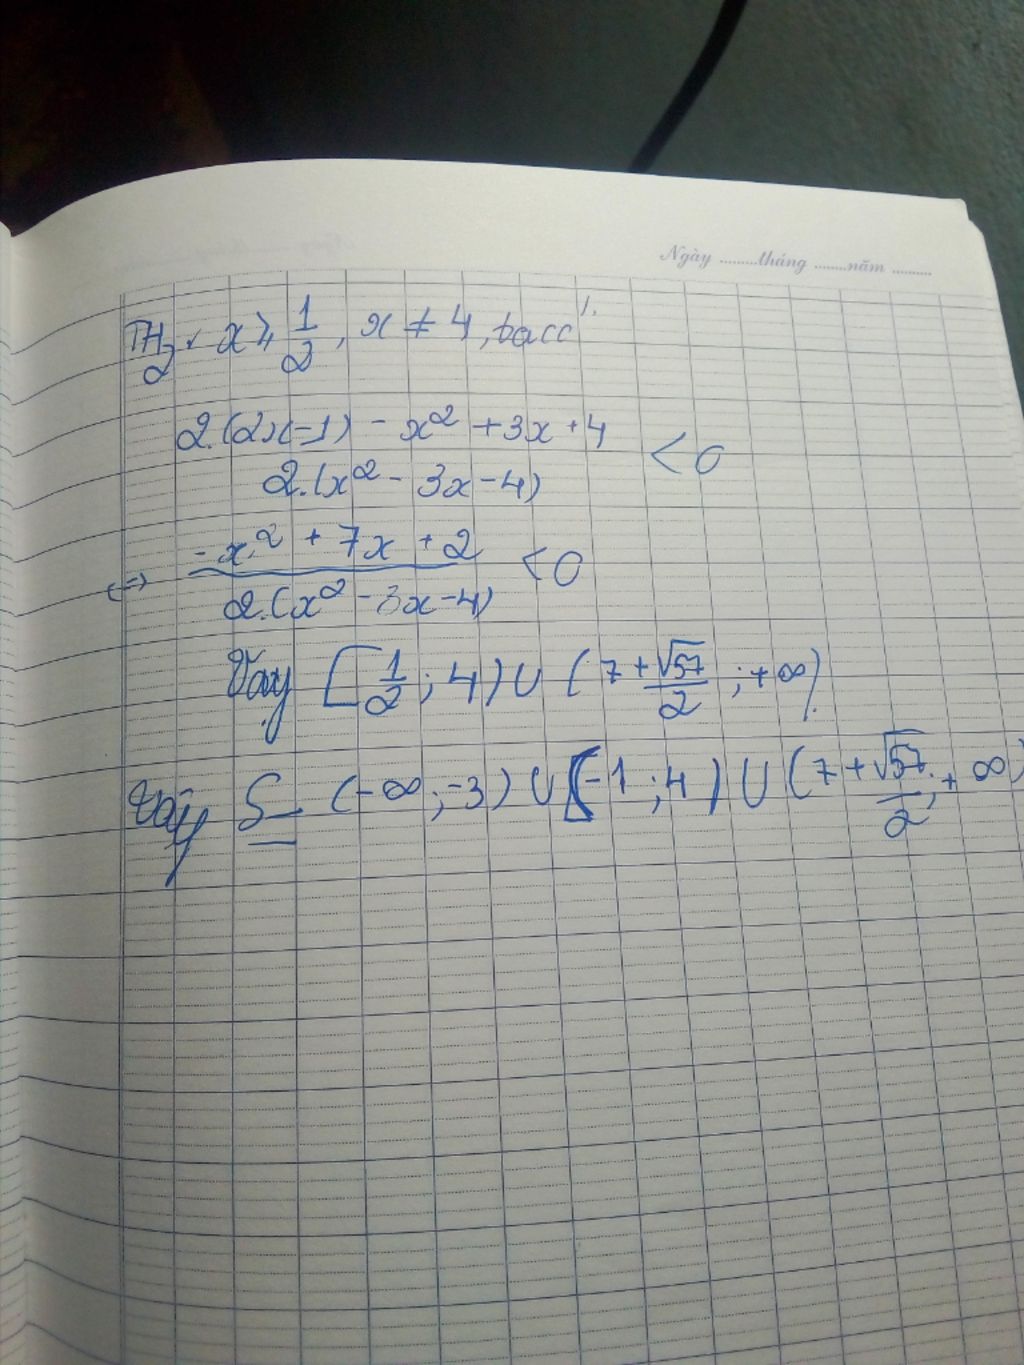 Ngày ........tháng .......năm .........
TH2. x ⩾ 1/2, x ≠ 4,
2.(2x-1) - x² + 3x + 4 / 2.(x² - 3x - 4) < 0
<=> -x² + 7x + 2 / 2.(x² - 3x - 4) < 0
Vậy [1/2; 4) U (7 + √57 / 2 ; +∞).
Vậy S = (-∞; -3) U (-1; 4) U (7 + √57 / 2; + ∞)